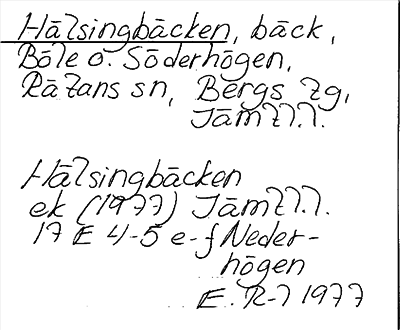 Hälsingbäcken, bäck,
Böle o. Söderhögen,
Rätans sn, Bergs tg,
Jämtl.
Hälsingbäcken
ek (1977) Jämtl.
17 E 4-5 e-f Neder-
högen
E. R-l 1977